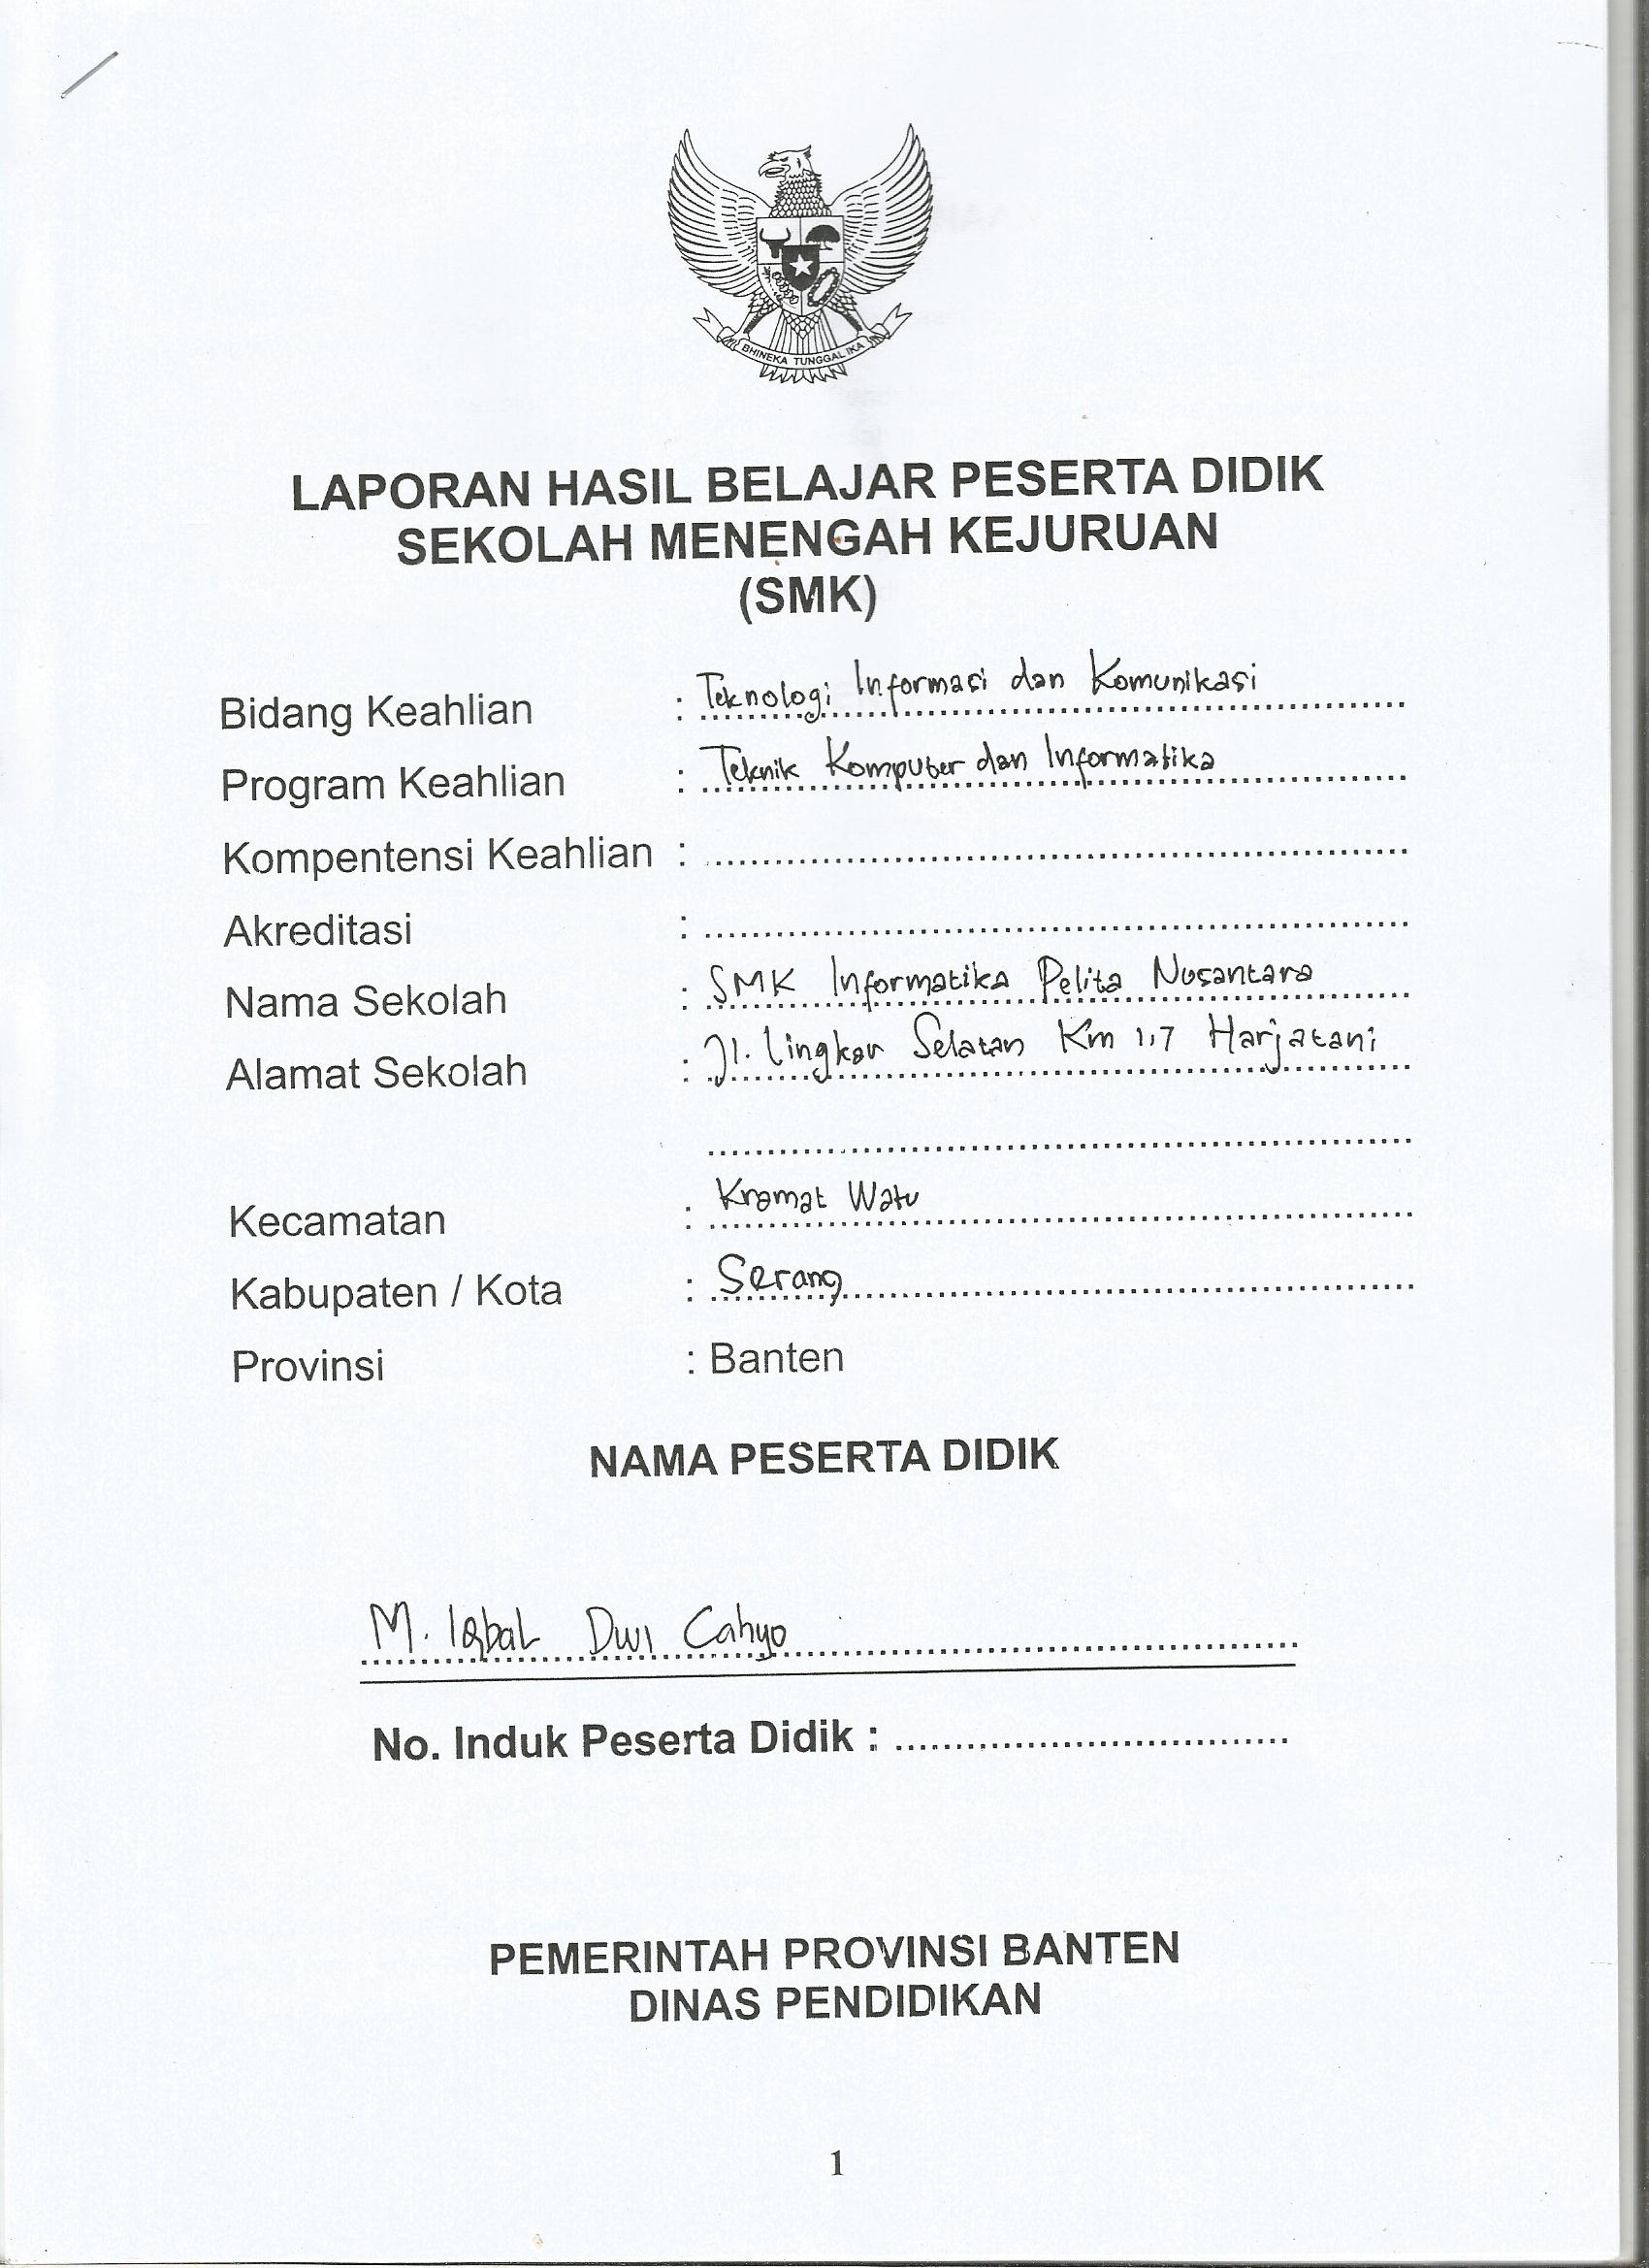 BHINEKA TUNGGAL IKA
LAPORAN HASIL BELAJAR PESERTA DIDIK
SEKOLAH MENENGAH KEJURUAN
(SMK)
Bidang Keahlian : Teknologi Informasi dan Komunikasi
Program Keahlian : Teknik Komputer dan Informatika
Kompentensi Keahlian : ....................
Akreditasi : ....................
Nama Sekolah : SMK Informatika Pelita Nusantara
Alamat Sekolah : Jl. Lingkar Selatan Km 1,7 Harjatani
....................
Kecamatan : Kramat Watu
Kabupaten / Kota : Serang
Provinsi : Banten
NAMA PESERTA DIDIK
M. Iqbal Dwi Cahyo
No. Induk Peserta Didik : ....................
PEMERINTAH PROVINSI BANTEN
DINAS PENDIDIKAN
1